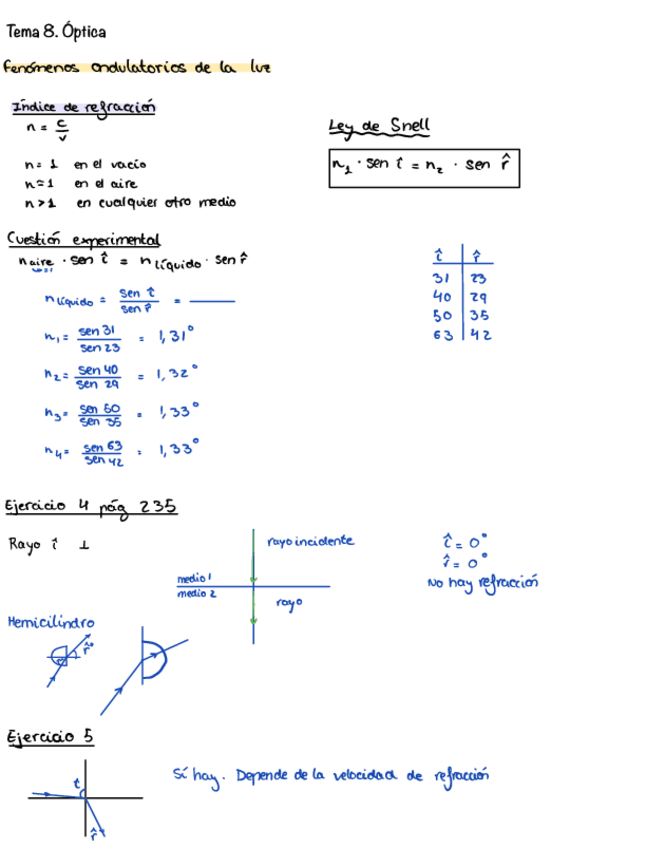 Tema 8. Óptica
Fenómenos ondulatorios de la luz
Índice de refracción
n = c/v
n = 1 en el vacío
n ≈ 1 en el aire
n > 1 en cualquier otro medio
Ley de Snell
n₁ · sen î = n₂ · sen r̂
Cuestión experimental
n aire · sen î = n líquido · sen r̂
n líquido = sen î / sen r̂ = ____
n₁ = sen 31 / sen 23 = 1,31°
n₂ = sen 40 / sen 29 = 1,32°
n₃ = sen 50 / sen 35 = 1,33°
n₄ = sen 63 / sen 42 = 1,33°
î r̂
31 23
40 29
50 35
63 42
Ejercicio 4 pág 235
Rayo î ⊥
rayo incidente
medio 1
medio 2
rayo
î = 0°
r̂ = 0°
No hay refracción
Hemicilindro
r̂
Ejercicio 5
î
r̂
Sí hay. Depende de la velocidad de refracción